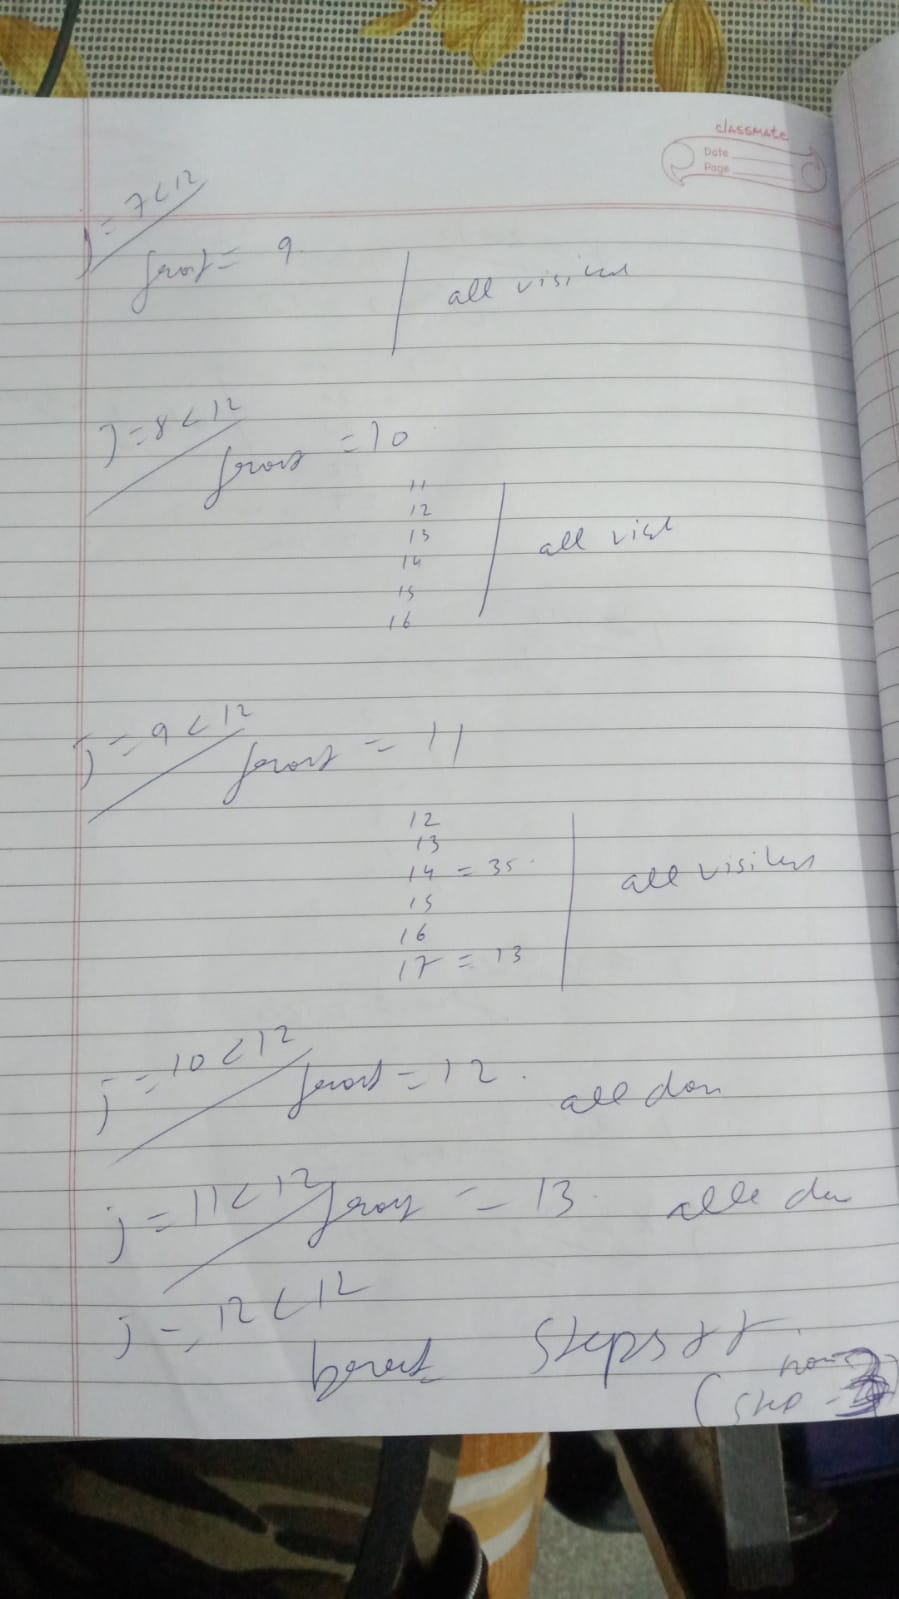 classmate
Date
Page
j = 7 < 12
front = 9
all visited
j = 8 < 12
front = 10
11
12
13
14
15
16
all visit
j = 9 < 12
front = 11
12
13
14 = 35
15
16
17 = 13
all visited
j = 10 < 12
front = 12.
all don
j = 11 < 12
front = 13.
j = 12 < 12
Steps++
now
(step =